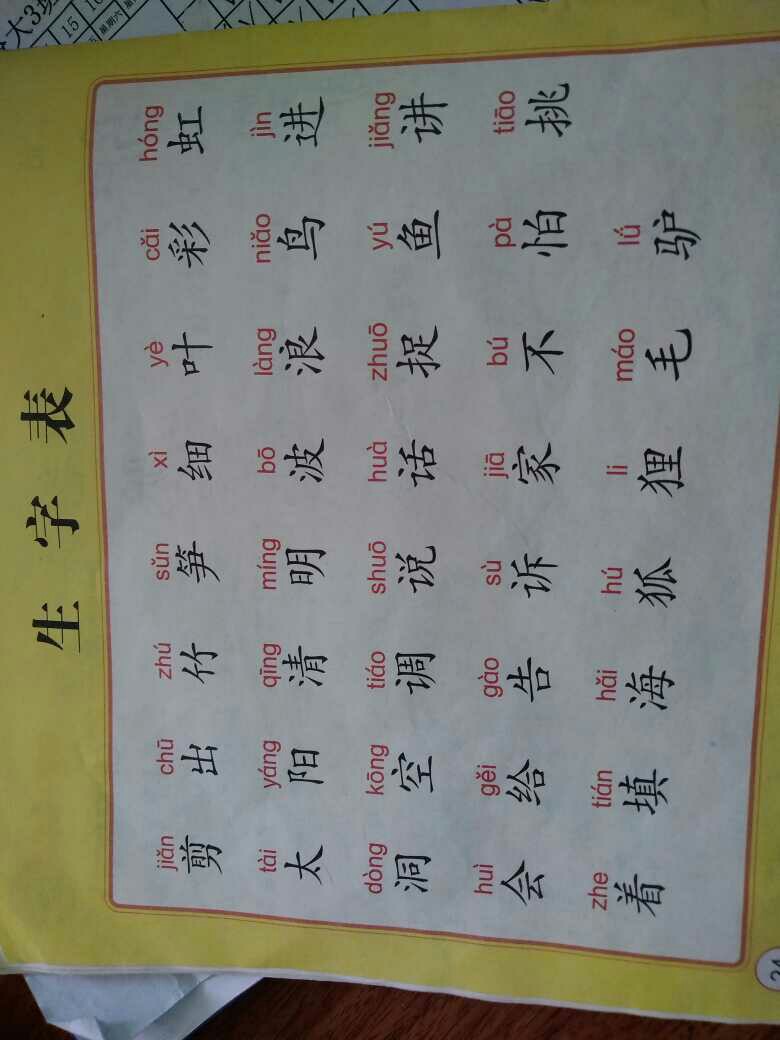 大3班
15 16
星期六
生字表
jiǎn chū zhú sǔn xì yè cǎi hóng
剪 出 竹 笋 细 叶 彩 虹
tài yáng qīng míng bō làng niǎo jìn
太 阳 清 明 波 浪 鸟 进
dòng kōng tiáo shuō huà zhuō yú jiǎng
洞 空 调 说 话 捉 鱼 讲
huì gěi gào sù jiā bú pà tiāo
会 给 告 诉 家 不 怕 挑
zhe tián hǎi hú li máo lú
着 填 海 狐 狸 毛 驴
24